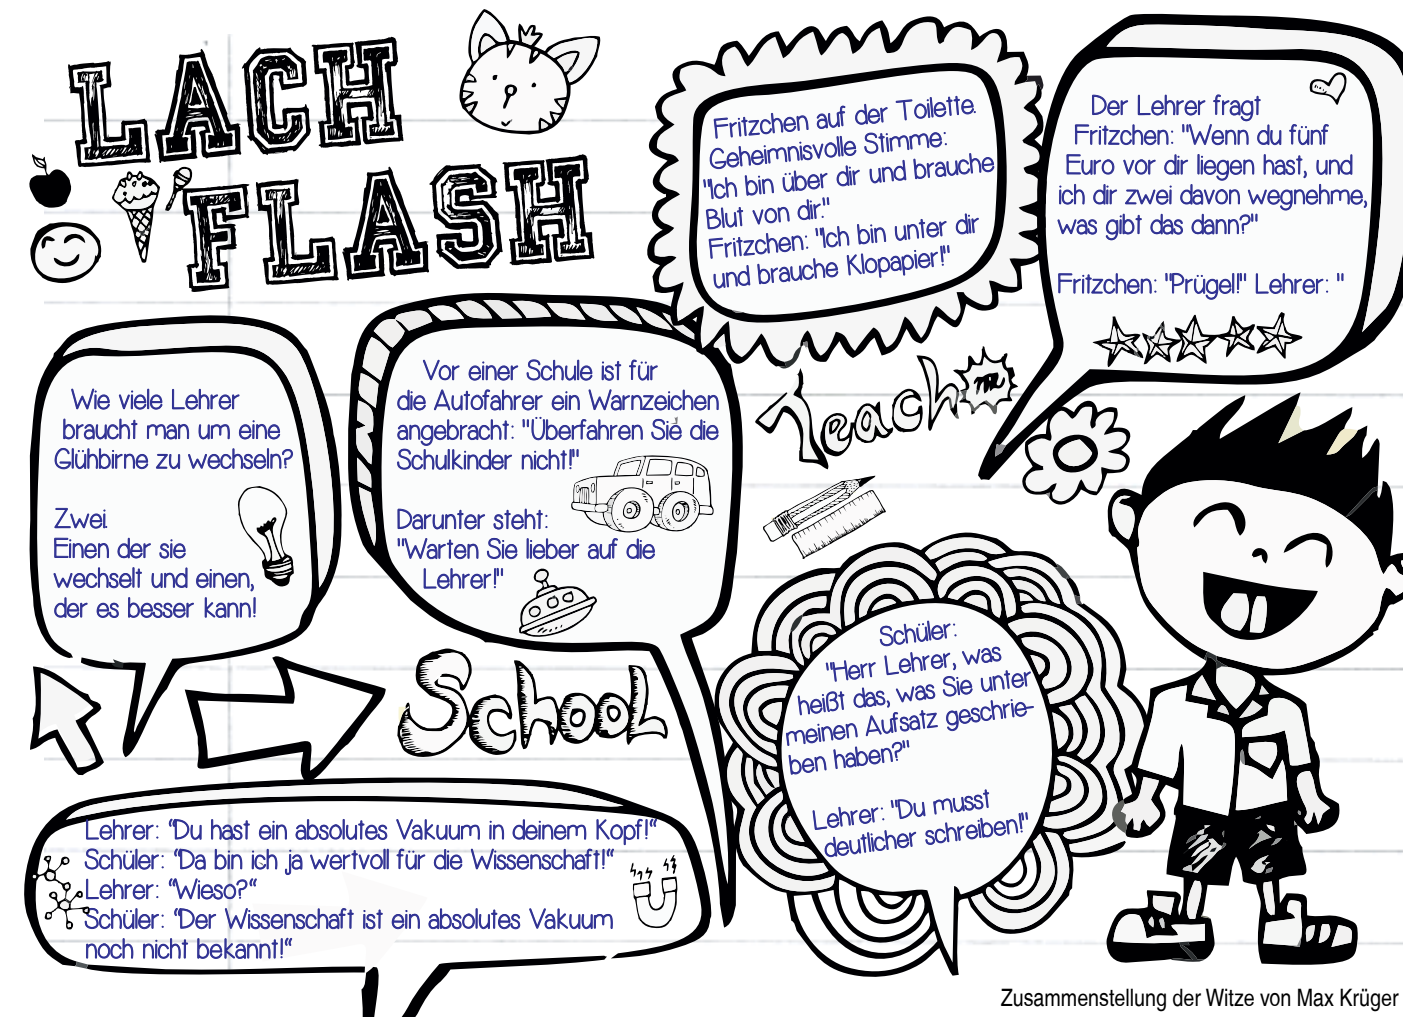 LACH
FLASH
Fritzchen auf der Toilette.
Geheimnisvolle Stimme:
"Ich bin über dir und brauche
Blut von dir."
Fritzchen: "Ich bin unter dir
und brauche Klopapier!"
Der Lehrer fragt
Fritzchen: "Wenn du fünf
Euro vor dir liegen hast, und
ich dir zwei davon wegnehme,
was gibt das dann?"
Fritzchen: "Prügel!" Lehrer: "
Wie viele Lehrer
braucht man um eine
Glühbirne zu wechseln?
Zwei.
Einen der sie
wechselt und einen,
der es besser kann!
Vor einer Schule ist für
die Autofahrer ein Warnzeichen
angebracht: "Überfahren Sie die
Schulkinder nicht!"
Darunter steht:
"Warten Sie lieber auf die
Lehrer!"
Teach
School
Schüler:
"Herr Lehrer, was
heißt das, was Sie unter
meinen Aufsatz geschrie-
ben haben?"
Lehrer: "Du musst
deutlicher schreiben!"
Lehrer: “Du hast ein absolutes Vakuum in deinem Kopf!“
Schüler: “Da bin ich ja wertvoll für die Wissenschaft!“
Lehrer: “Wieso?“
Schüler: “Der Wissenschaft ist ein absolutes Vakuum
noch nicht bekannt!“
Zusammenstellung der Witze von Max Krüger